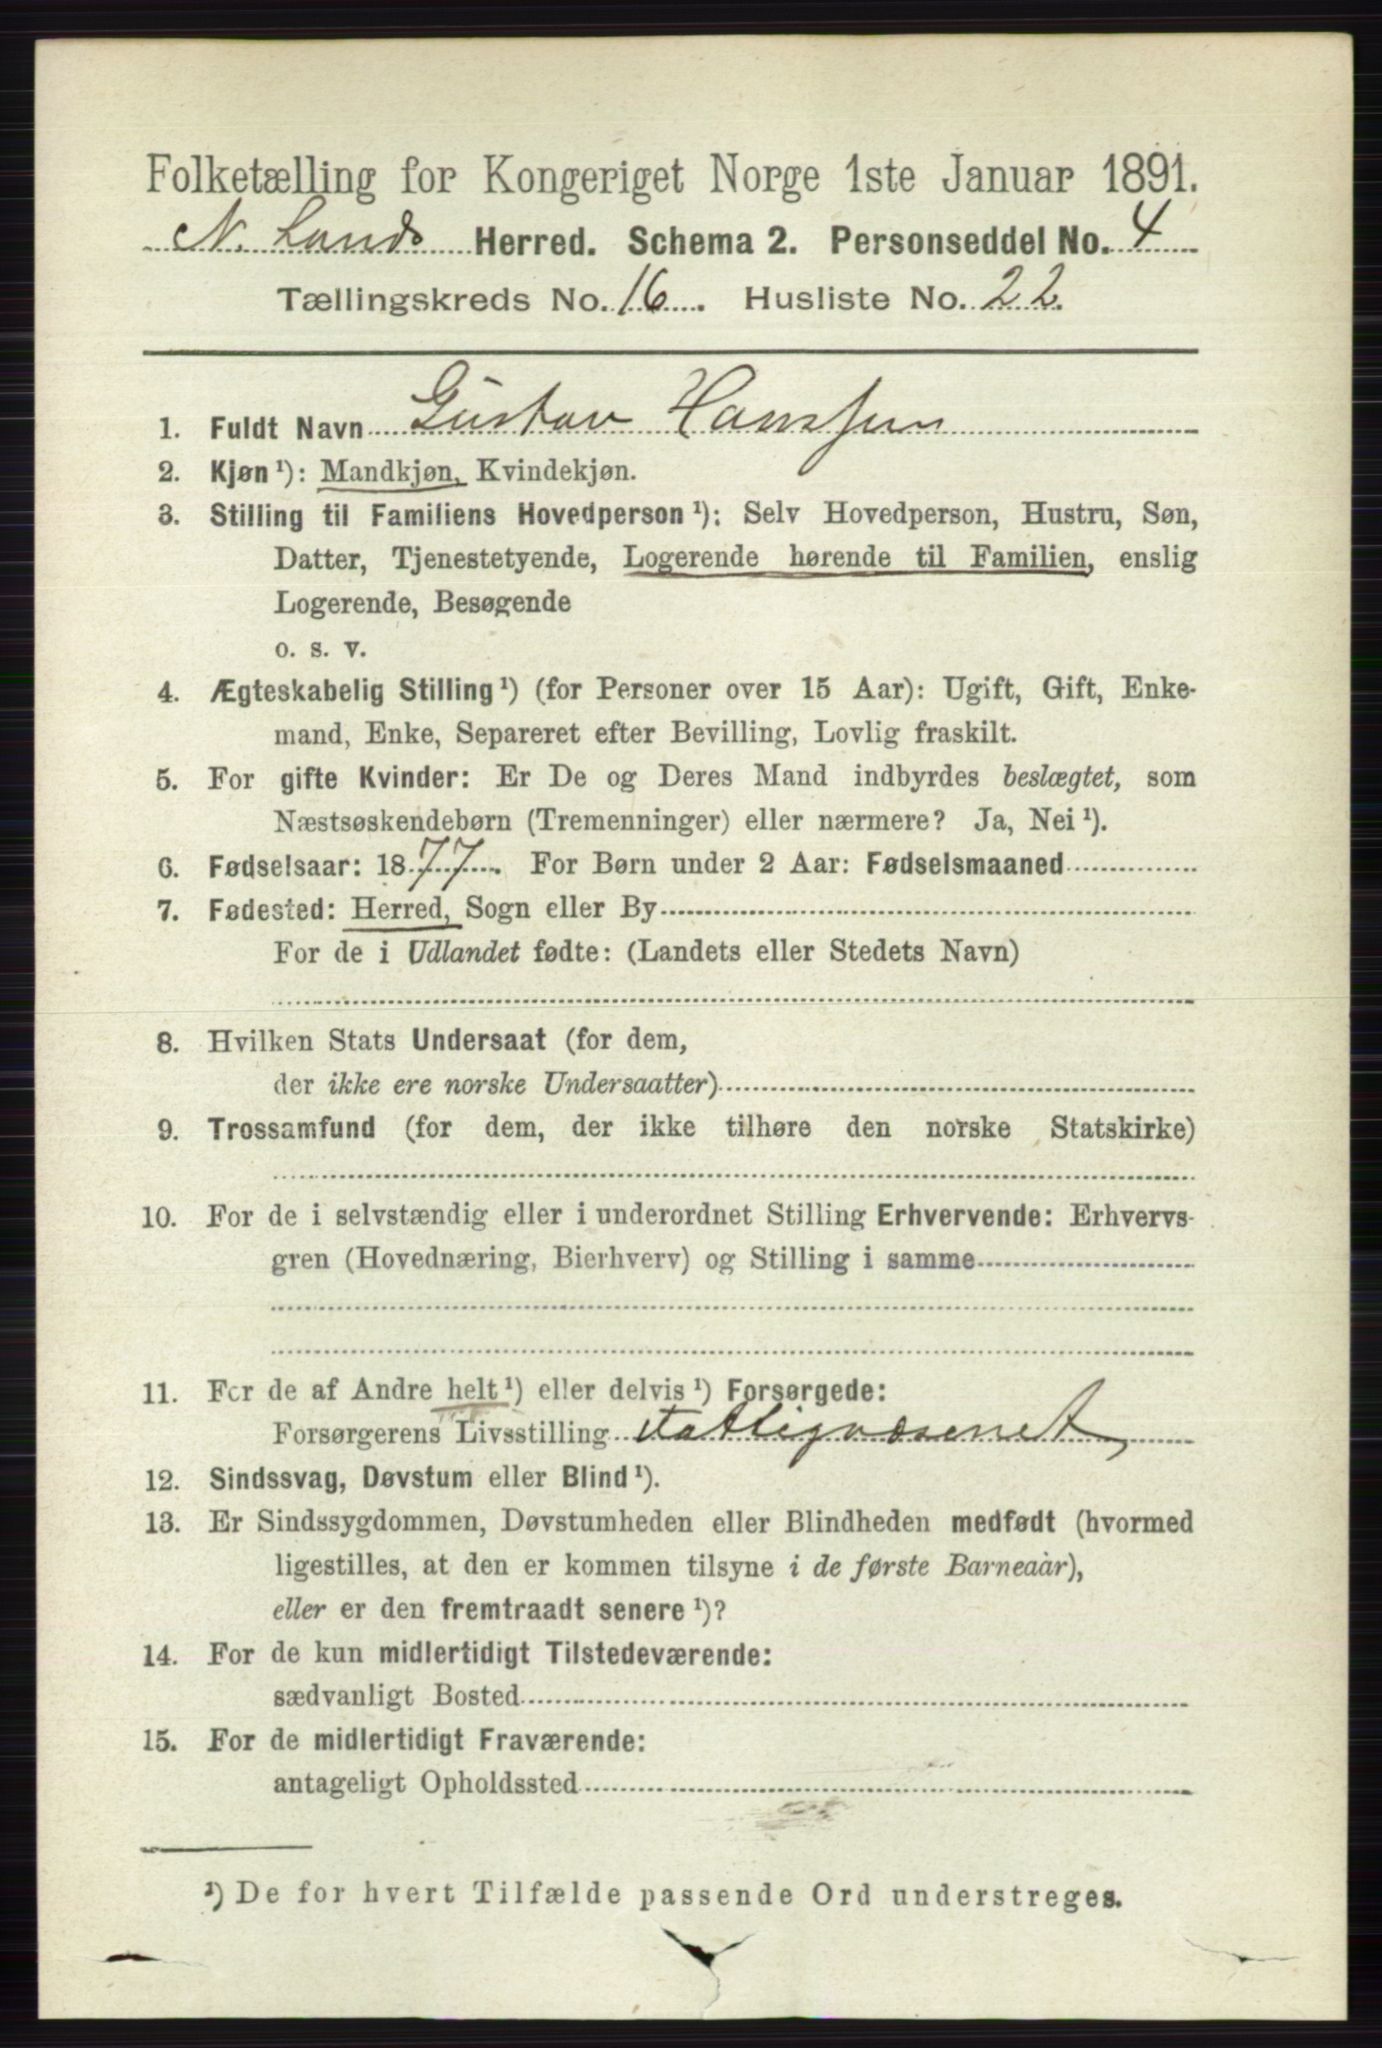 Folketælling for Kongeriget Norge 1ste Januar 1891.
N. Lands Herred. Schema 2. Personseddel No. 4
Tællingskreds No. 16. Husliste No. 22.
1. Fuldt Navn Gustav Hanssen
2. Kjøn ¹): Mandkjøn, Kvindekjøn.
3. Stilling til Familiens Hovedperson ¹): Selv Hovedperson, Hustru, Søn,
Datter, Tjenestetyende, Logerende hørende til Familien, enslig
Logerende, Besøgende
o. s. v.
4. Ægteskabelig Stilling ¹) (for Personer over 15 Aar): Ugift, Gift, Enke-
mand, Enke, Separeret efter Bevilling, Lovlig fraskilt.
5. For gifte Kvinder: Er De og Deres Mand indbyrdes beslægtet, som
Næstsøskendebørn (Tremenninger) eller nærmere? Ja, Nei ¹).
6. Fødselsaar: 1877. For Børn under 2 Aar: Fødselsmaaned
7. Fødested: Herred, Sogn eller By
For de i Udlandet fødte: (Landets eller Stedets Navn)
8. Hvilken Stats Undersaat (for dem,
der ikke ere norske Undersaatter)
9. Trossamfund (for dem, der ikke tilhøre den norske Statskirke)
10. For de i selvstændig eller i underordnet Stilling Erhvervende: Erhvervs-
gren (Hovednæring, Bierhverv) og Stilling i samme
11. For de af Andre helt ¹) eller delvis ¹) Forsørgede:
Forsørgerens Livsstilling Fattigvæsenet,
12. Sindssvag, Døvstum eller Blind ¹).
13. Er Sindssygdommen, Døvstumheden eller Blindheden medfødt (hvormed
ligestilles, at den er kommen tilsyne i de første Barneaar),
eller er den fremtraadt senere ¹)?
14. For de kun midlertidigt Tilstedeværende:
sædvanligt Bosted
15. For de midlertidigt Fraværende:
antageligt Opholdssted
¹) De for hvert Tilfælde passende Ord understreges.